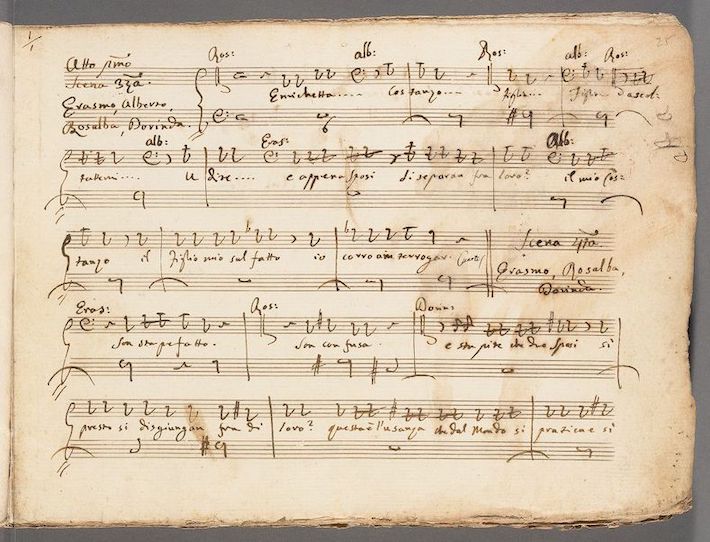 1/1
Ros: alb: Ros: alb: Ros:
Atto pmo
Scena 3za.
Erasmo, Alberto,
Rosalba, Dorinda.
Enrichetta.... Costanzo.... figlia.... figlio d'ascol:
alb: Eras: Alb:
tatemi.... Udite.... e appena sposi si separan fra loro? il mio Cos:
tanzo il figlio mio sul fatto io corro a interrogar.
Scena 4ta.
Erasmo, Rosalba,
Dorinda.
Eras: Ros: Dorin:
son stupefatto. son confusa. e stupite che due sposi si
presto si disgiungan fra di loro? questa è l'usanza che dal Mondo si pratica e si